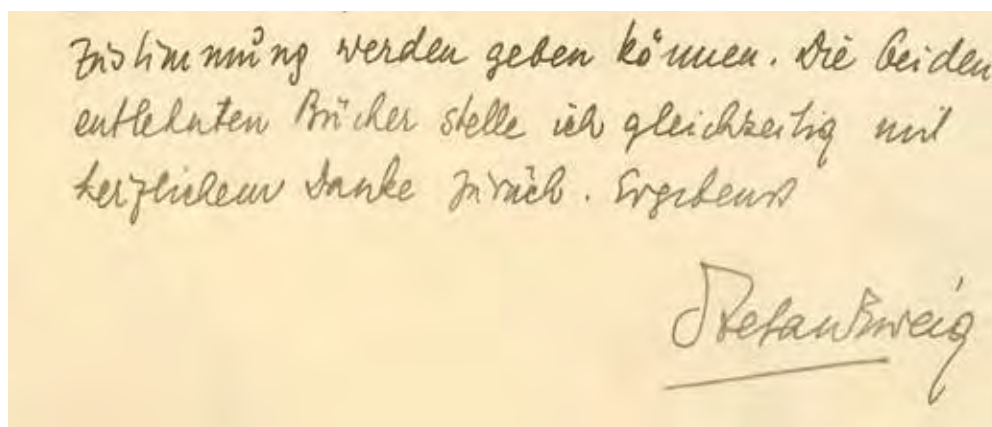 Zustimmung werden geben können. Die beiden
entlehnten Bücher stelle ich gleichzeitig mit
herzlichem Danke zurück. Ergebenst
Stefan Zweig